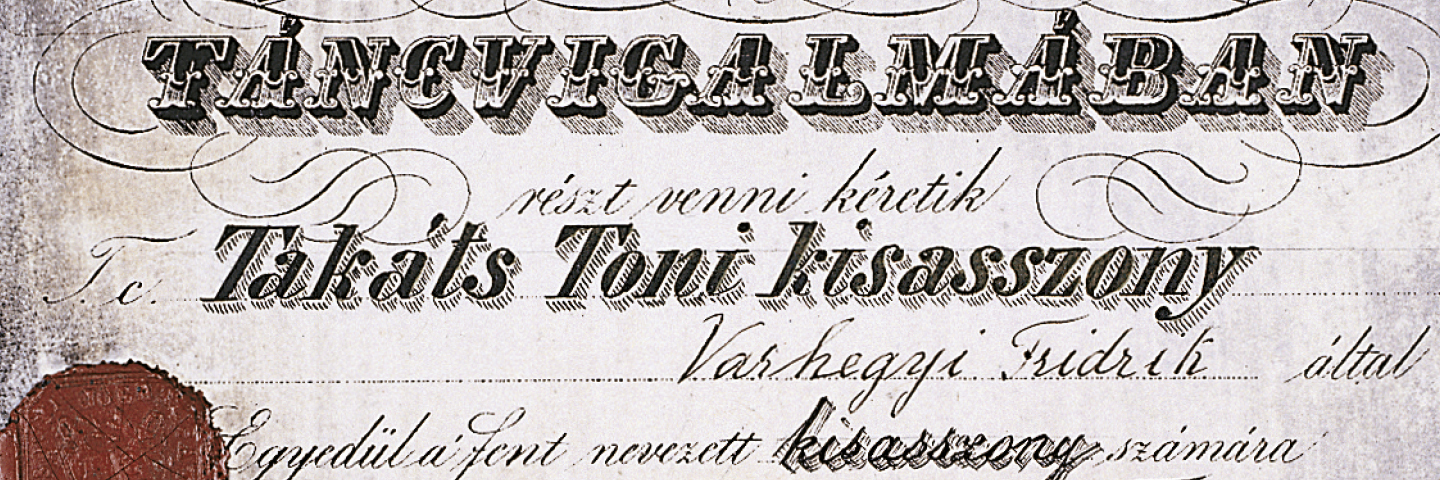 TÁNCVIGALMÁBAN
részt venni kéretik
T. c. Takáts Toni kisasszony
Varhegyi Fridrik által
Egyedül a' fent nevezett kisasszony számára